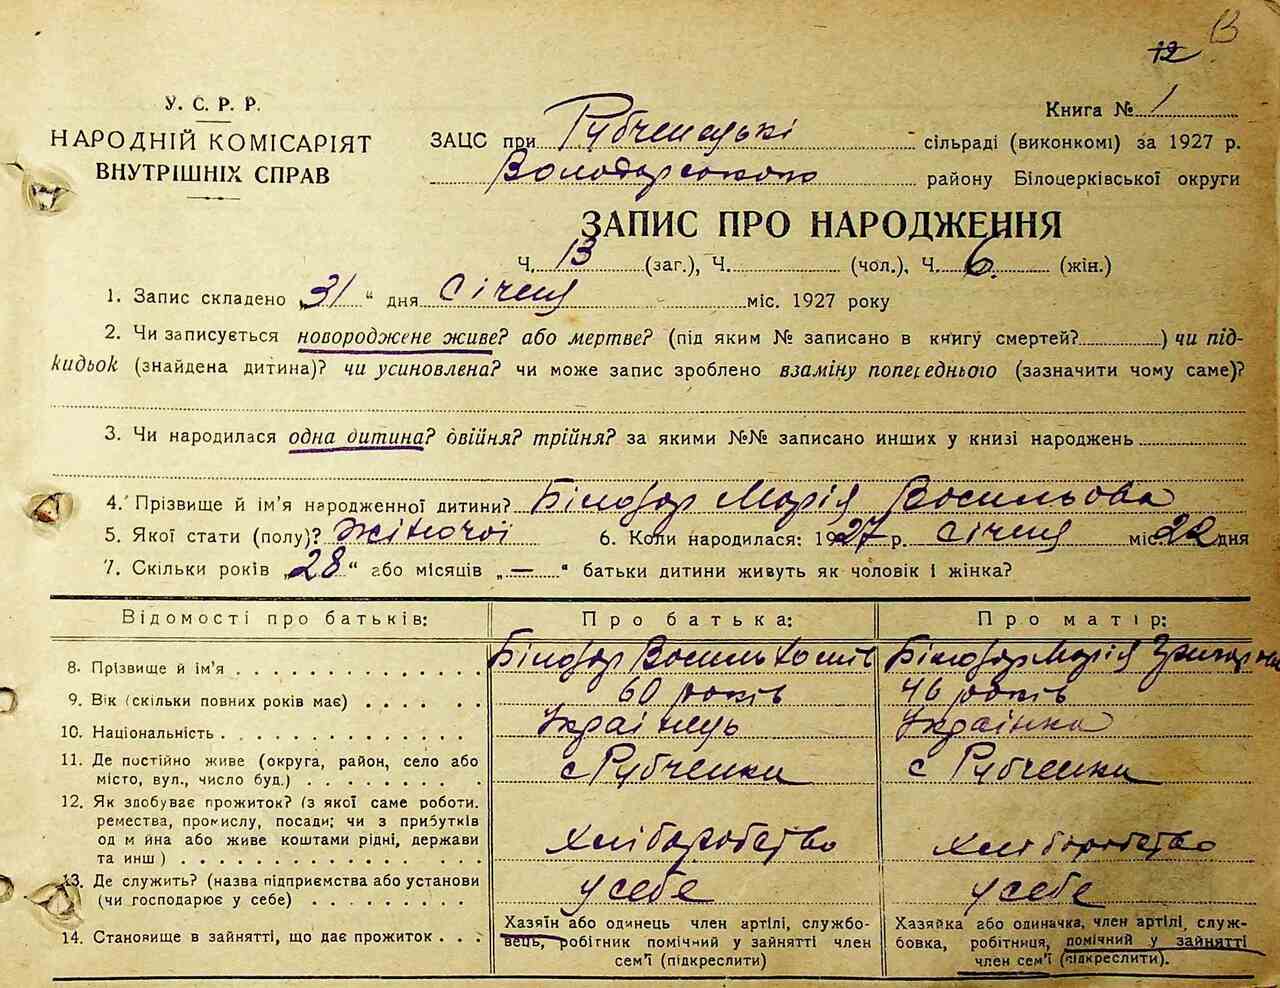 13
12
У. С. Р. Р.
НАРОДНІЙ КОМІСАРІЯТ
ВНУТРІШНІХ СПРАВ
Книга № 1
ЗАЦС при Рубченській сільраді (виконкомі) за 1927 р.
Володарського району Білоцерківської округи
ЗАПИС ПРО НАРОДЖЕННЯ
Ч. 13 (заг.), Ч. (чол.), Ч. 6. (жін.)
1. Запис складено „31“ дня Січня міс. 1927 року
2. Чи записується новороджене живе? або мертве? (під яким № записано в книгу смертей? ) чи під-
кидьок (знайдена дитина)? чи усиновлена? чи може запис зроблено взаміну попереднього (зазначити чому саме)?
3. Чи народилася одна дитина? двійня? трійня? за якими №№ записано инших у книзі народжень
4. Прізвище й ім'я народженної дитини? Білозор Марія Васильова
5. Якої стати (полу)? Жіночої 6. Коли народилася: 1927 р. Січня міс. 22 дня
7. Скільки років „28“ або місяців „—“ батьки дитини живуть як чоловік і жінка?
Відомості про батьків: Про батька: Про матір:
8. Прізвище й ім'я Білозор Василь Білозор Марія Григорова
9. Вік (скільки повних років має) 60 років 46 років
10. Національність Українець Українка
11. Де постійно живе (округа, район, село або
місто, вул., число буд.) с Рубченки с Рубченки
12. Як здобуває прожиток? (з якої саме роботи.
ремества, промислу, посади; чи з прибутків
од м йна або живе коштами рідні, держави
та инш) Хліборобство Хліборобство
13. Де служить? (назва підприємства або установи
(чи господарює у себе) у себе у себе
14. Становище в зайнятті, що дає прожиток
Хазяїн або одинець член артілі, службо-
вець, робітник помічний у зайнятті член
сем'ї (підкреслити)
Хазяйка або одиначка, член артілі, служ-
бовка, робітниця, помічний у зайнятті
член сем'ї (підкреслити).